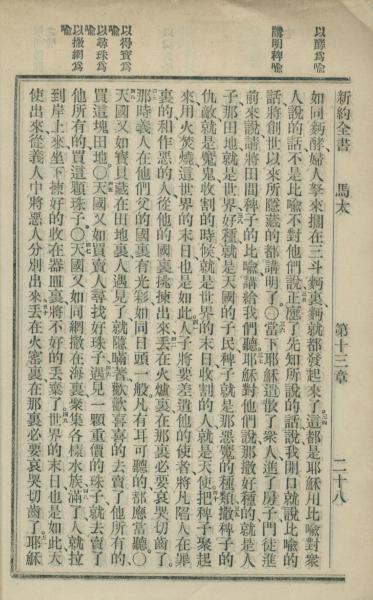 以酵為喻
講明稗喻
以得寶為喻
以尋珠為喻
以撒網為喻
新約全書　馬太　第十三章　二十八
如同麪酵婦人拏來擱在三斗麪裏麪就都發起來了這都是耶穌用比喻對衆
人說的話不是比喻不對他們說正應了先知所說的話說我開口就說比喻的
話將創世以來所隱藏的都講明了〇當下耶穌遣散了衆人進了房子門徒進
前來說請將田間稗子的比喻講給我們聽耶穌對他們說那撒好種的就是人
子那田地就是世界好種就是天國的子民稗子就是那惡魔的種類撒稗子的
仇敵就是魔鬼收割的時候就是世界的末日收割的人就是天使把稗子聚起
來用火焚燒這世界的末日也是如此人子將要差遣他的使者將凡陷人在罪
裏的和作惡的人從他的國裏挑揀出來丟在火爐裏在那裏必要哀哭切齒了
那時義人在他們父的國裏有光彩如同日頭一般凡有耳可聽的都應當聽〇
天國又如寶貝藏在田地裏人遇見了就隱瞞著歡歡喜喜的去賣了他所有的
買這塊田地〇天國又如買賣人尋找好珠子遇見一顆重價的珠子就去賣了
他所有的買這顆珠子〇天國又如同網撒在海裏聚集各樣水族滿了人就拉
到岸上來坐下揀好的收在器皿裏將不好的丟棄了世界的末日也是如此天
使出來從義人中將惡人分別出來丟在火窰裏在那裏必要哀哭切齒了耶穌